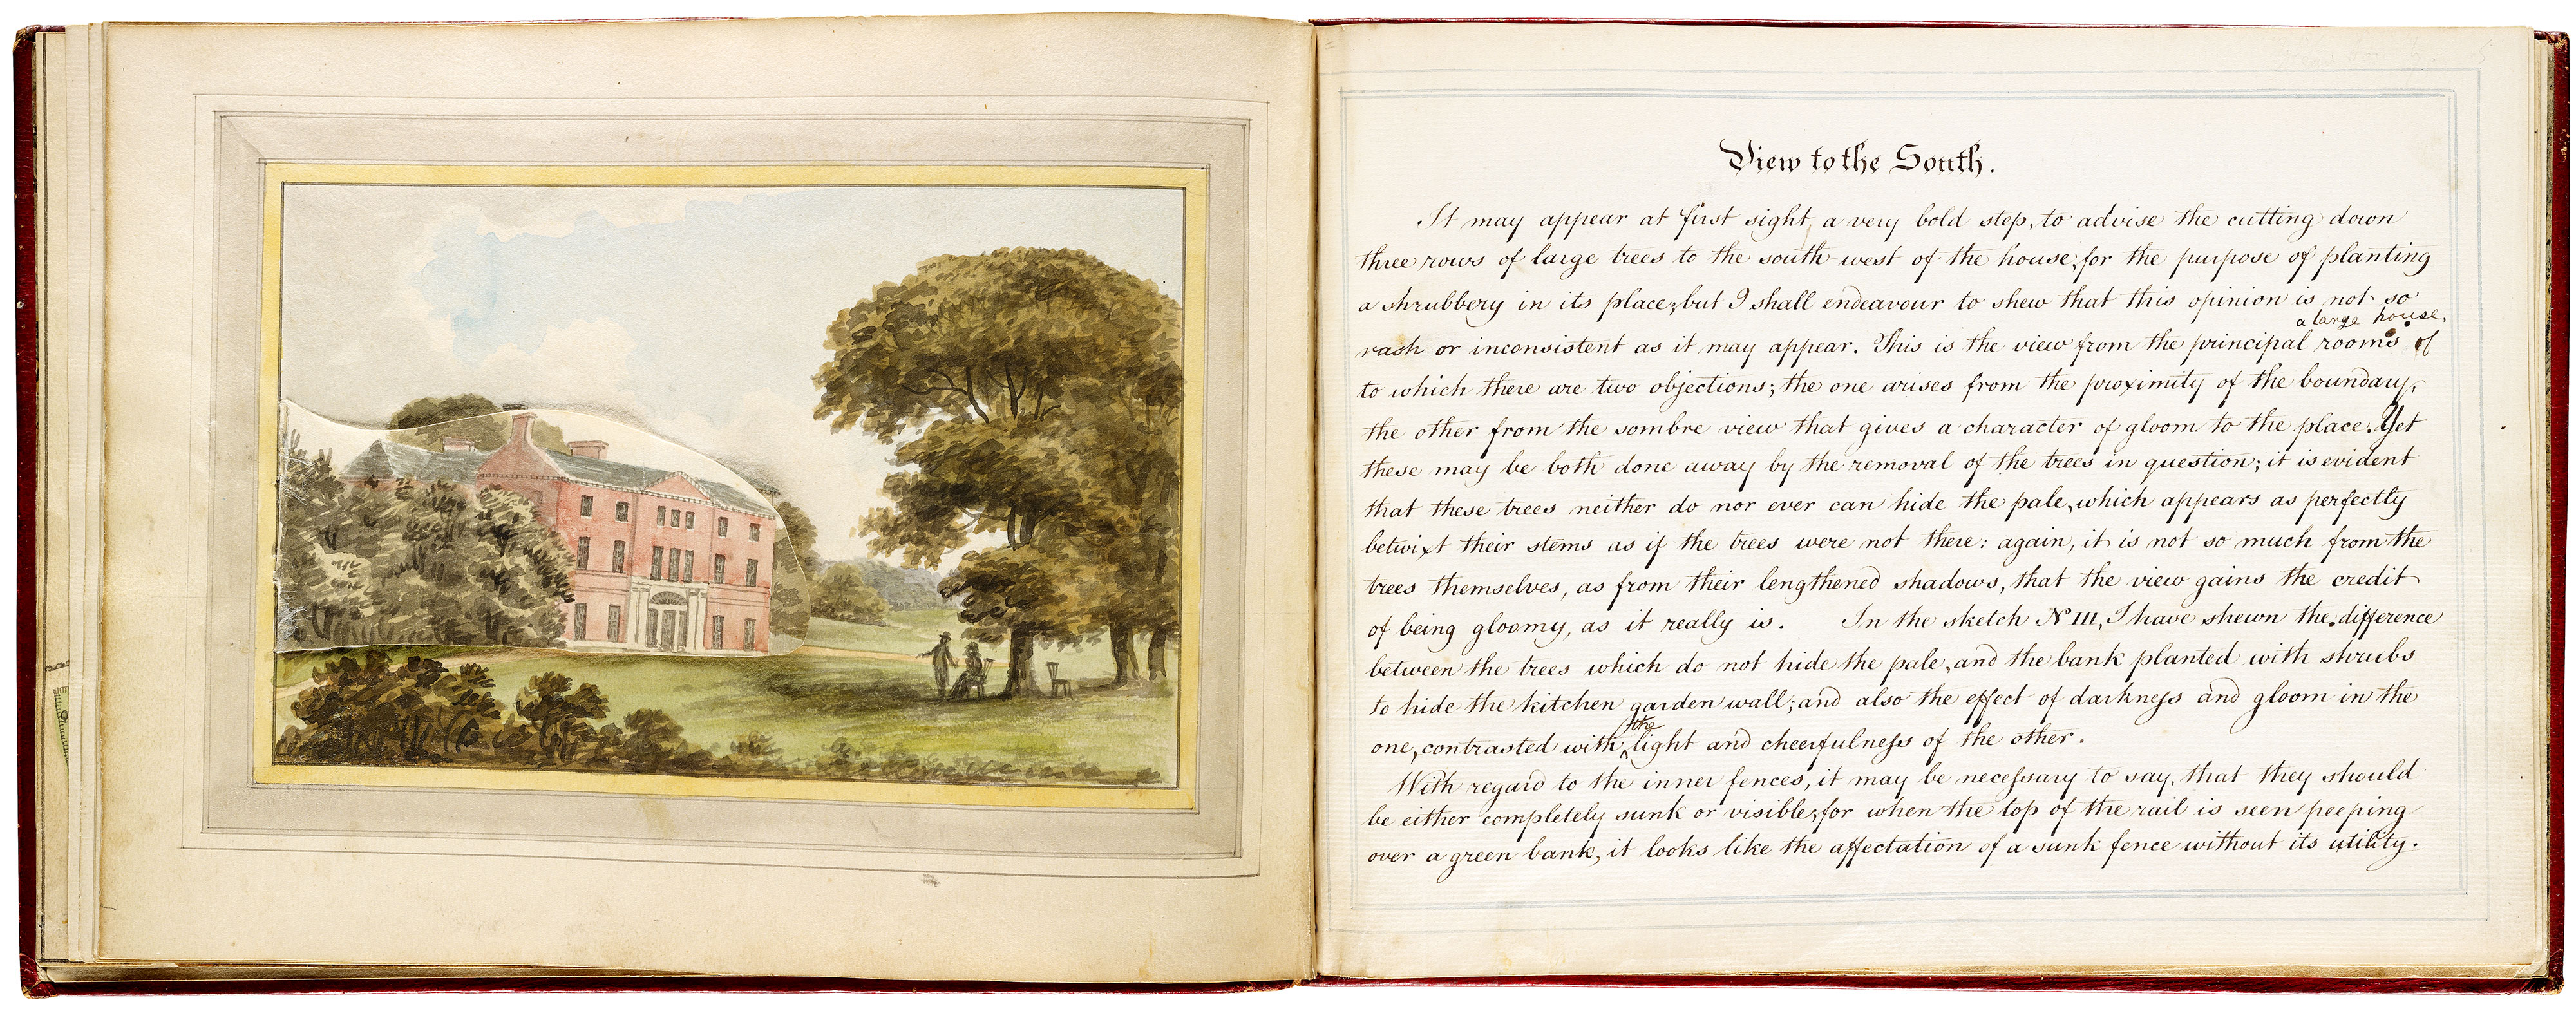 View to the South.
It may appear at first sight, a very bold step, to advise the cutting down
three rows of large trees to the south-west of the house, for the purpose of planting
a shrubbery in its place; but I shall endeavour to shew that this opinion is not so
a large house.
rash or inconsistent as it may appear. This is the view from the principal rooms of
to which there are two objections; the one arises from the proximity of the boundary,
the other from the sombre view that gives a character of gloom to the place. Yet
these may be both done away by the removal of the trees in question; it is evident
that these trees neither do nor ever can hide the pale, which appears as perfectly
betwixt their stems as if the trees were not there: again, it is not so much from the
trees themselves, as from their lengthened shadows, that the view gains the credit
of being gloomy, as it really is. In the sketch No III, I have shewn the difference
between the trees which do not hide the pale, and the bank planted with shrubs
to hide the kitchen garden wall; and also the effect of darkneſs and gloom in the
the
one, contrasted with light and cheerfulneſs of the other.
With regard to the inner fences, it may be neceſsary to say, that they should
be either completely sunk or visible; for when the top of the rail is seen peeping
over a green bank, it looks like the affectation of a sunk fence without its utility.